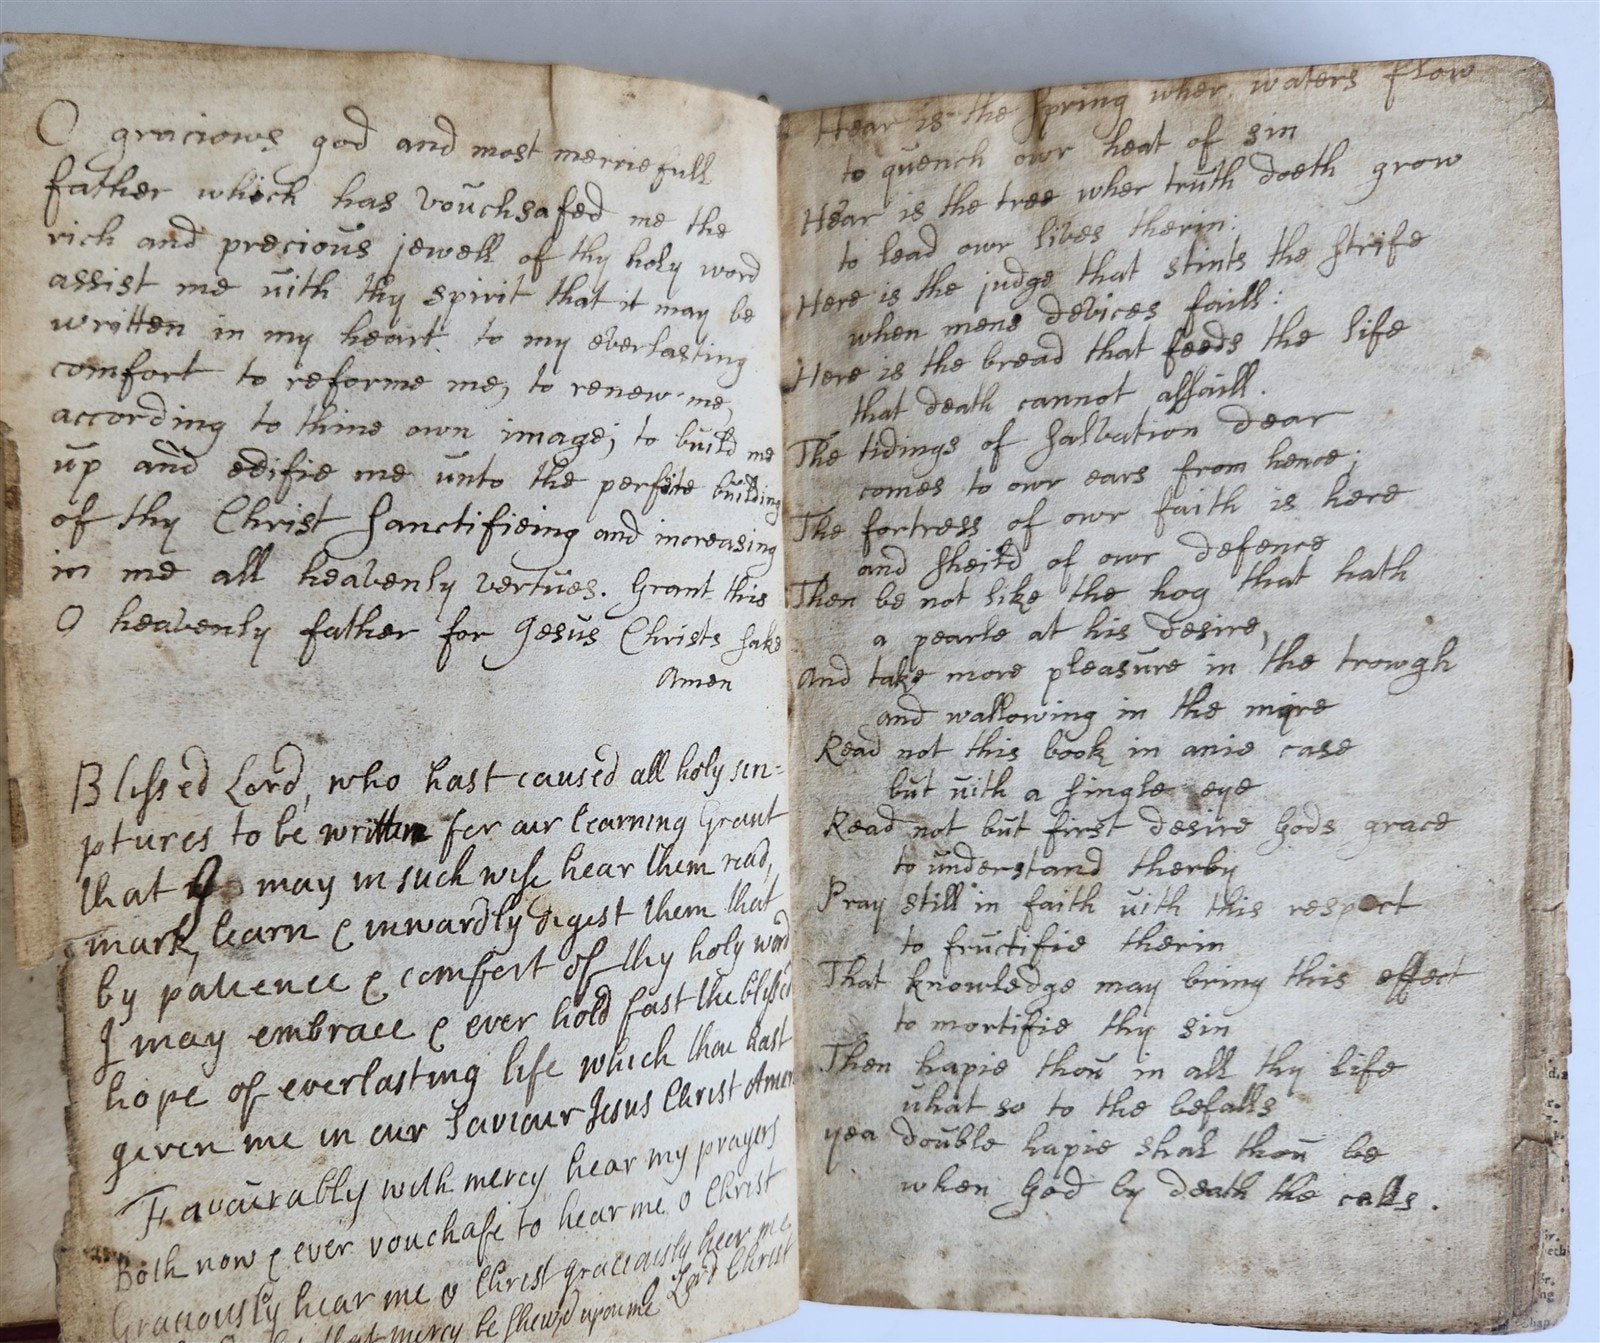 O gracious god and most merciefull
father which has vouchsafed me the
rich and precious jewell of thy holy word
assist me uith thy spirit that it may be
written in my heart to my everlasting
comfort to reforme me, to renew me,
according to thine own image; to build me
up and edifie me unto the perfite building
of thy Christ sanctifieing and increasing
in me all heavenly vertues. Grant this
O heavenly father for Jesus Christs sake
Amen
Blessed Lord, who hast caused all holy scri-
ptures to be written for our learning Grant
that I may in such wise hear them read,
mark, learn & inwardly digest them that
by patience & comfort of thy holy word
I may embrace & ever hold fast the blessed
hope of everlasting life which thou hast
given me in our Saviour Jesus Christ Amen
Favourably with mercy hear my prayers
Both now & ever vouchafe to hear me o Christ
Graciously hear me o Christ graciously hear me
mercy be shewed upon me Lord Christ
Hear is the spring wher waters flow
to quench owr heat of sin
Hear is the tree wher truth doeth grow
to lead owr lives therin:
Here is the judge that stints the strife
when mens devices faill:
Here is the bread that feeds the life
that death cannot assaill.
The tidings of salvation dear
comes to owr ears from hence;
The fortress of owr faith is here
and sheild of owr defence
Then be not like the hog that hath
a pearle at his desire,
And take more pleasure in the trowgh
and wallowing in the mire
Read not this book in anie case
but uith a single eye
Read not but first desire Gods grace
to understand therby
Pray still in faith uith this respect
to fructifie therin
That knowledge may bring this effect
to mortifie thy sin
Then hapie thou in all thy life
uhat so to the befalls
yea double hapie shal thou be
when God by death the calls.